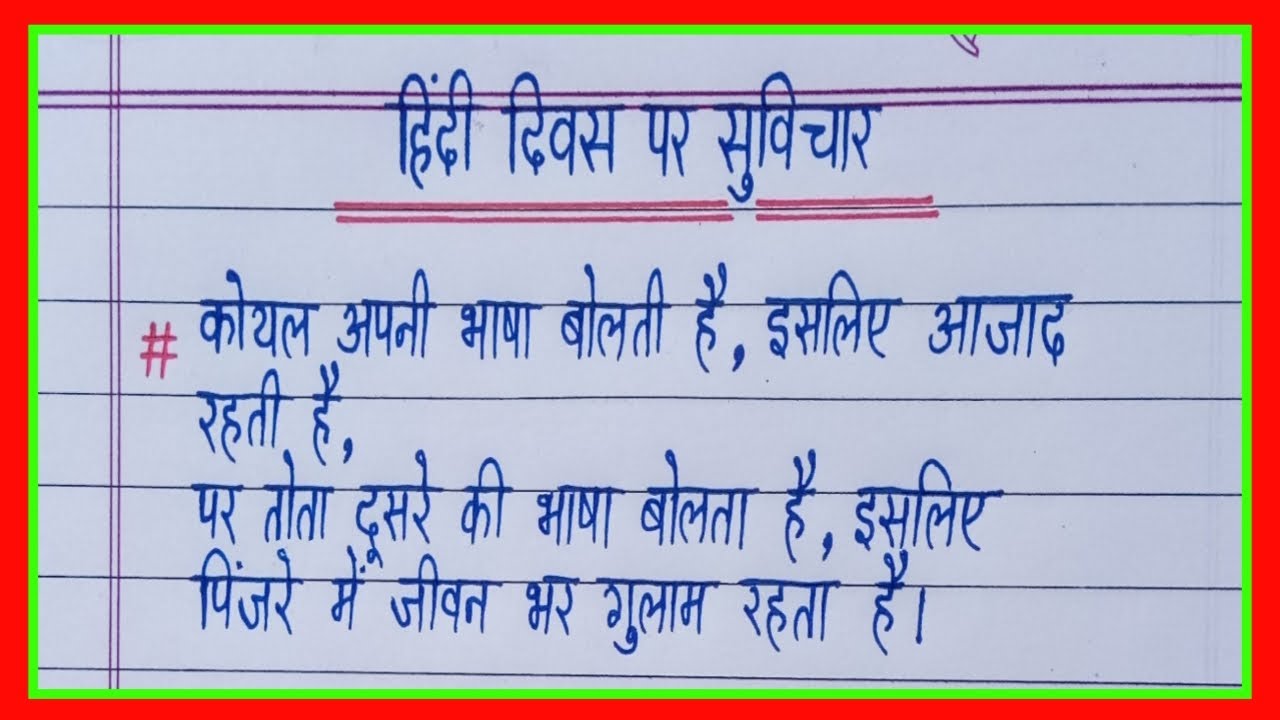 हिंदी दिवस पर सुविचार
# कोयल अपनी भाषा बोलती है, इसलिए आजाद
रहती है,
पर तोता दूसरे की भाषा बोलता है, इसलिए
पिंजरे में जीवन भर गुलाम रहता है।